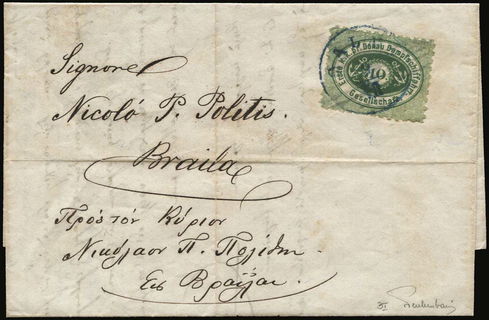 Signore
Nicoló P. Politis.
Braila
Πρὸς τόν Κύριον
Νικόλαον Π. Πολίτην
Εἰς Βραΐλαν
Donau Dampfschiffahrt
10
Gesellschaft